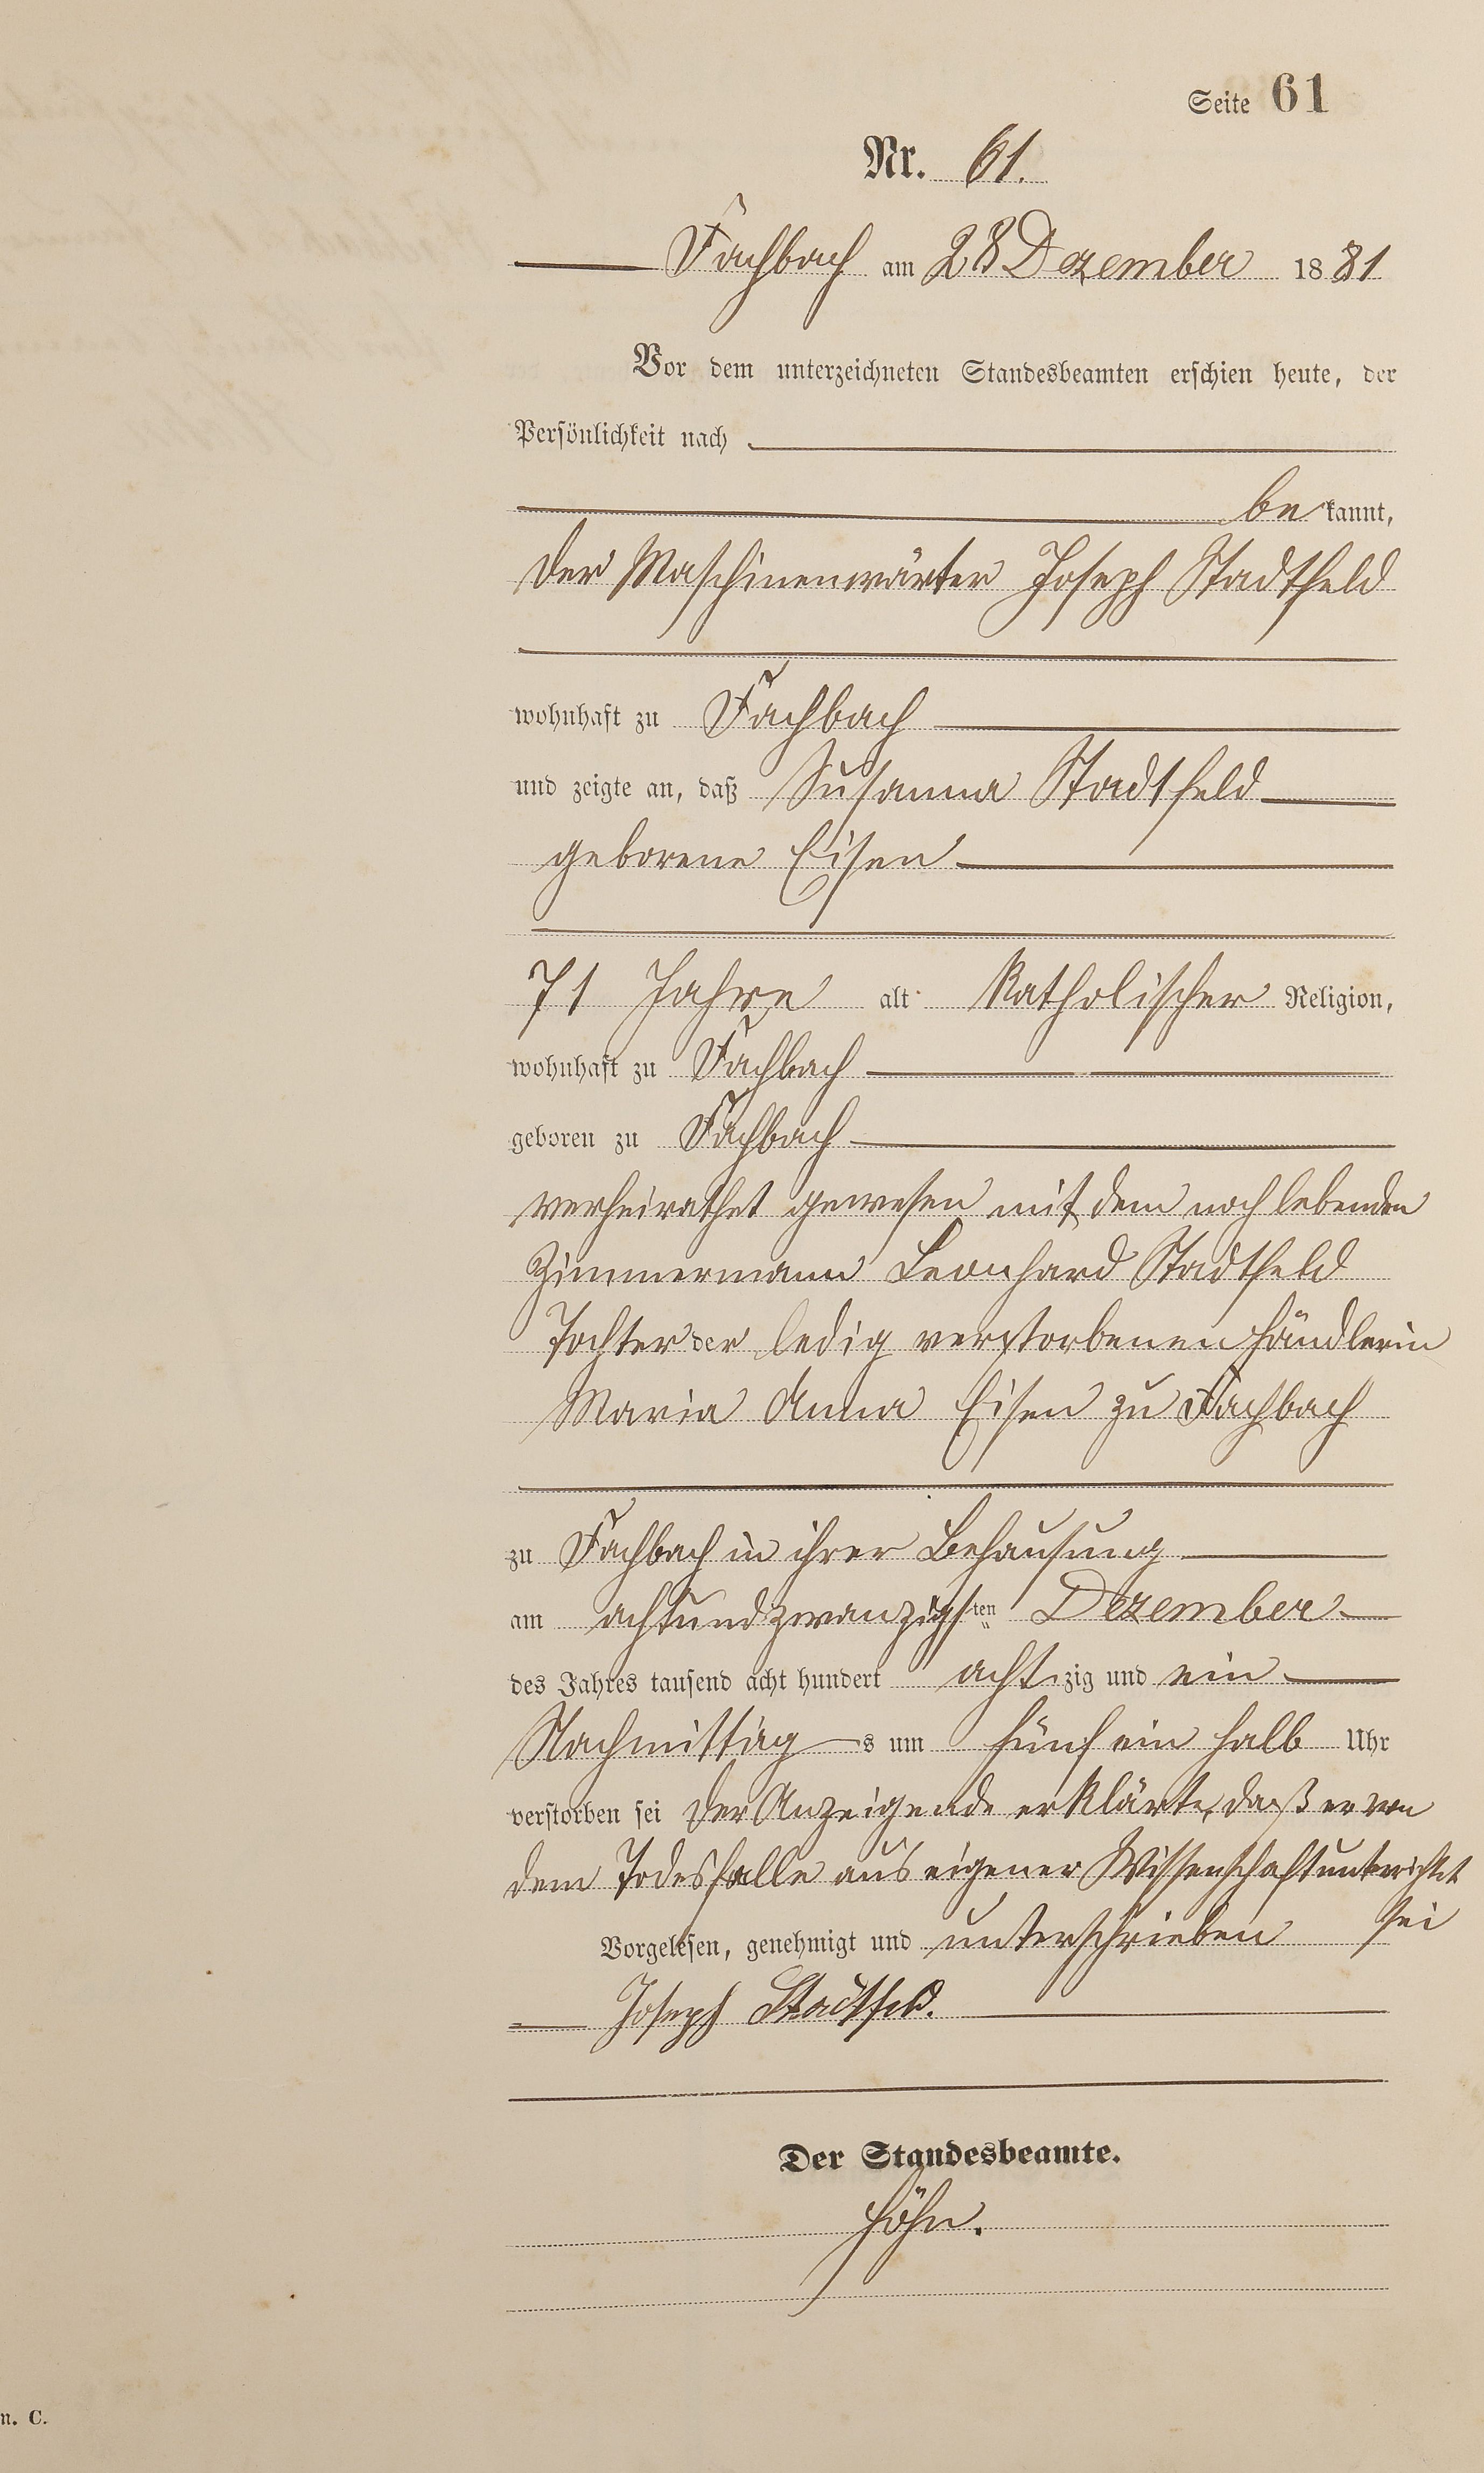 Seite 61
Nr. 61.
Fachbach am 28 Dezember 1881
Vor dem unterzeichneten Standesbeamten erschien heute, der
Persönlichkeit nach
be kannt,
der Maschinenwärter Joseph Stadtfeld
wohnhaft zu Fachbach
und zeigte an, daß Susanna Stadtfeld
geborene Eisen
71 Jahre alt Katholischer Religion,
wohnhaft zu Fachbach
geboren zu Fachbach
verheirathet gewesen mit dem noch lebenden
Zimmermann Leonhard Stadtfeld
Tochter der ledig verstorbenen Händlerin
Maria Anna Eisen zu Fachbach
zu Fachbach in ihrer Behausung
am achtundzwanzigsten Dezember
des Jahres tausend acht hundert achtzig und ein
Nachmittags um fünf ein halb Uhr
verstorben sei der Anzeigende erklärte, daß er von
dem Todesfalle aus eigener Wissenschaft unterrichtet
sei
Vorgelesen, genehmigt und unterschrieben
Joseph Stadtfeld.
Der Standesbeamte.
Höhn.
n. C.